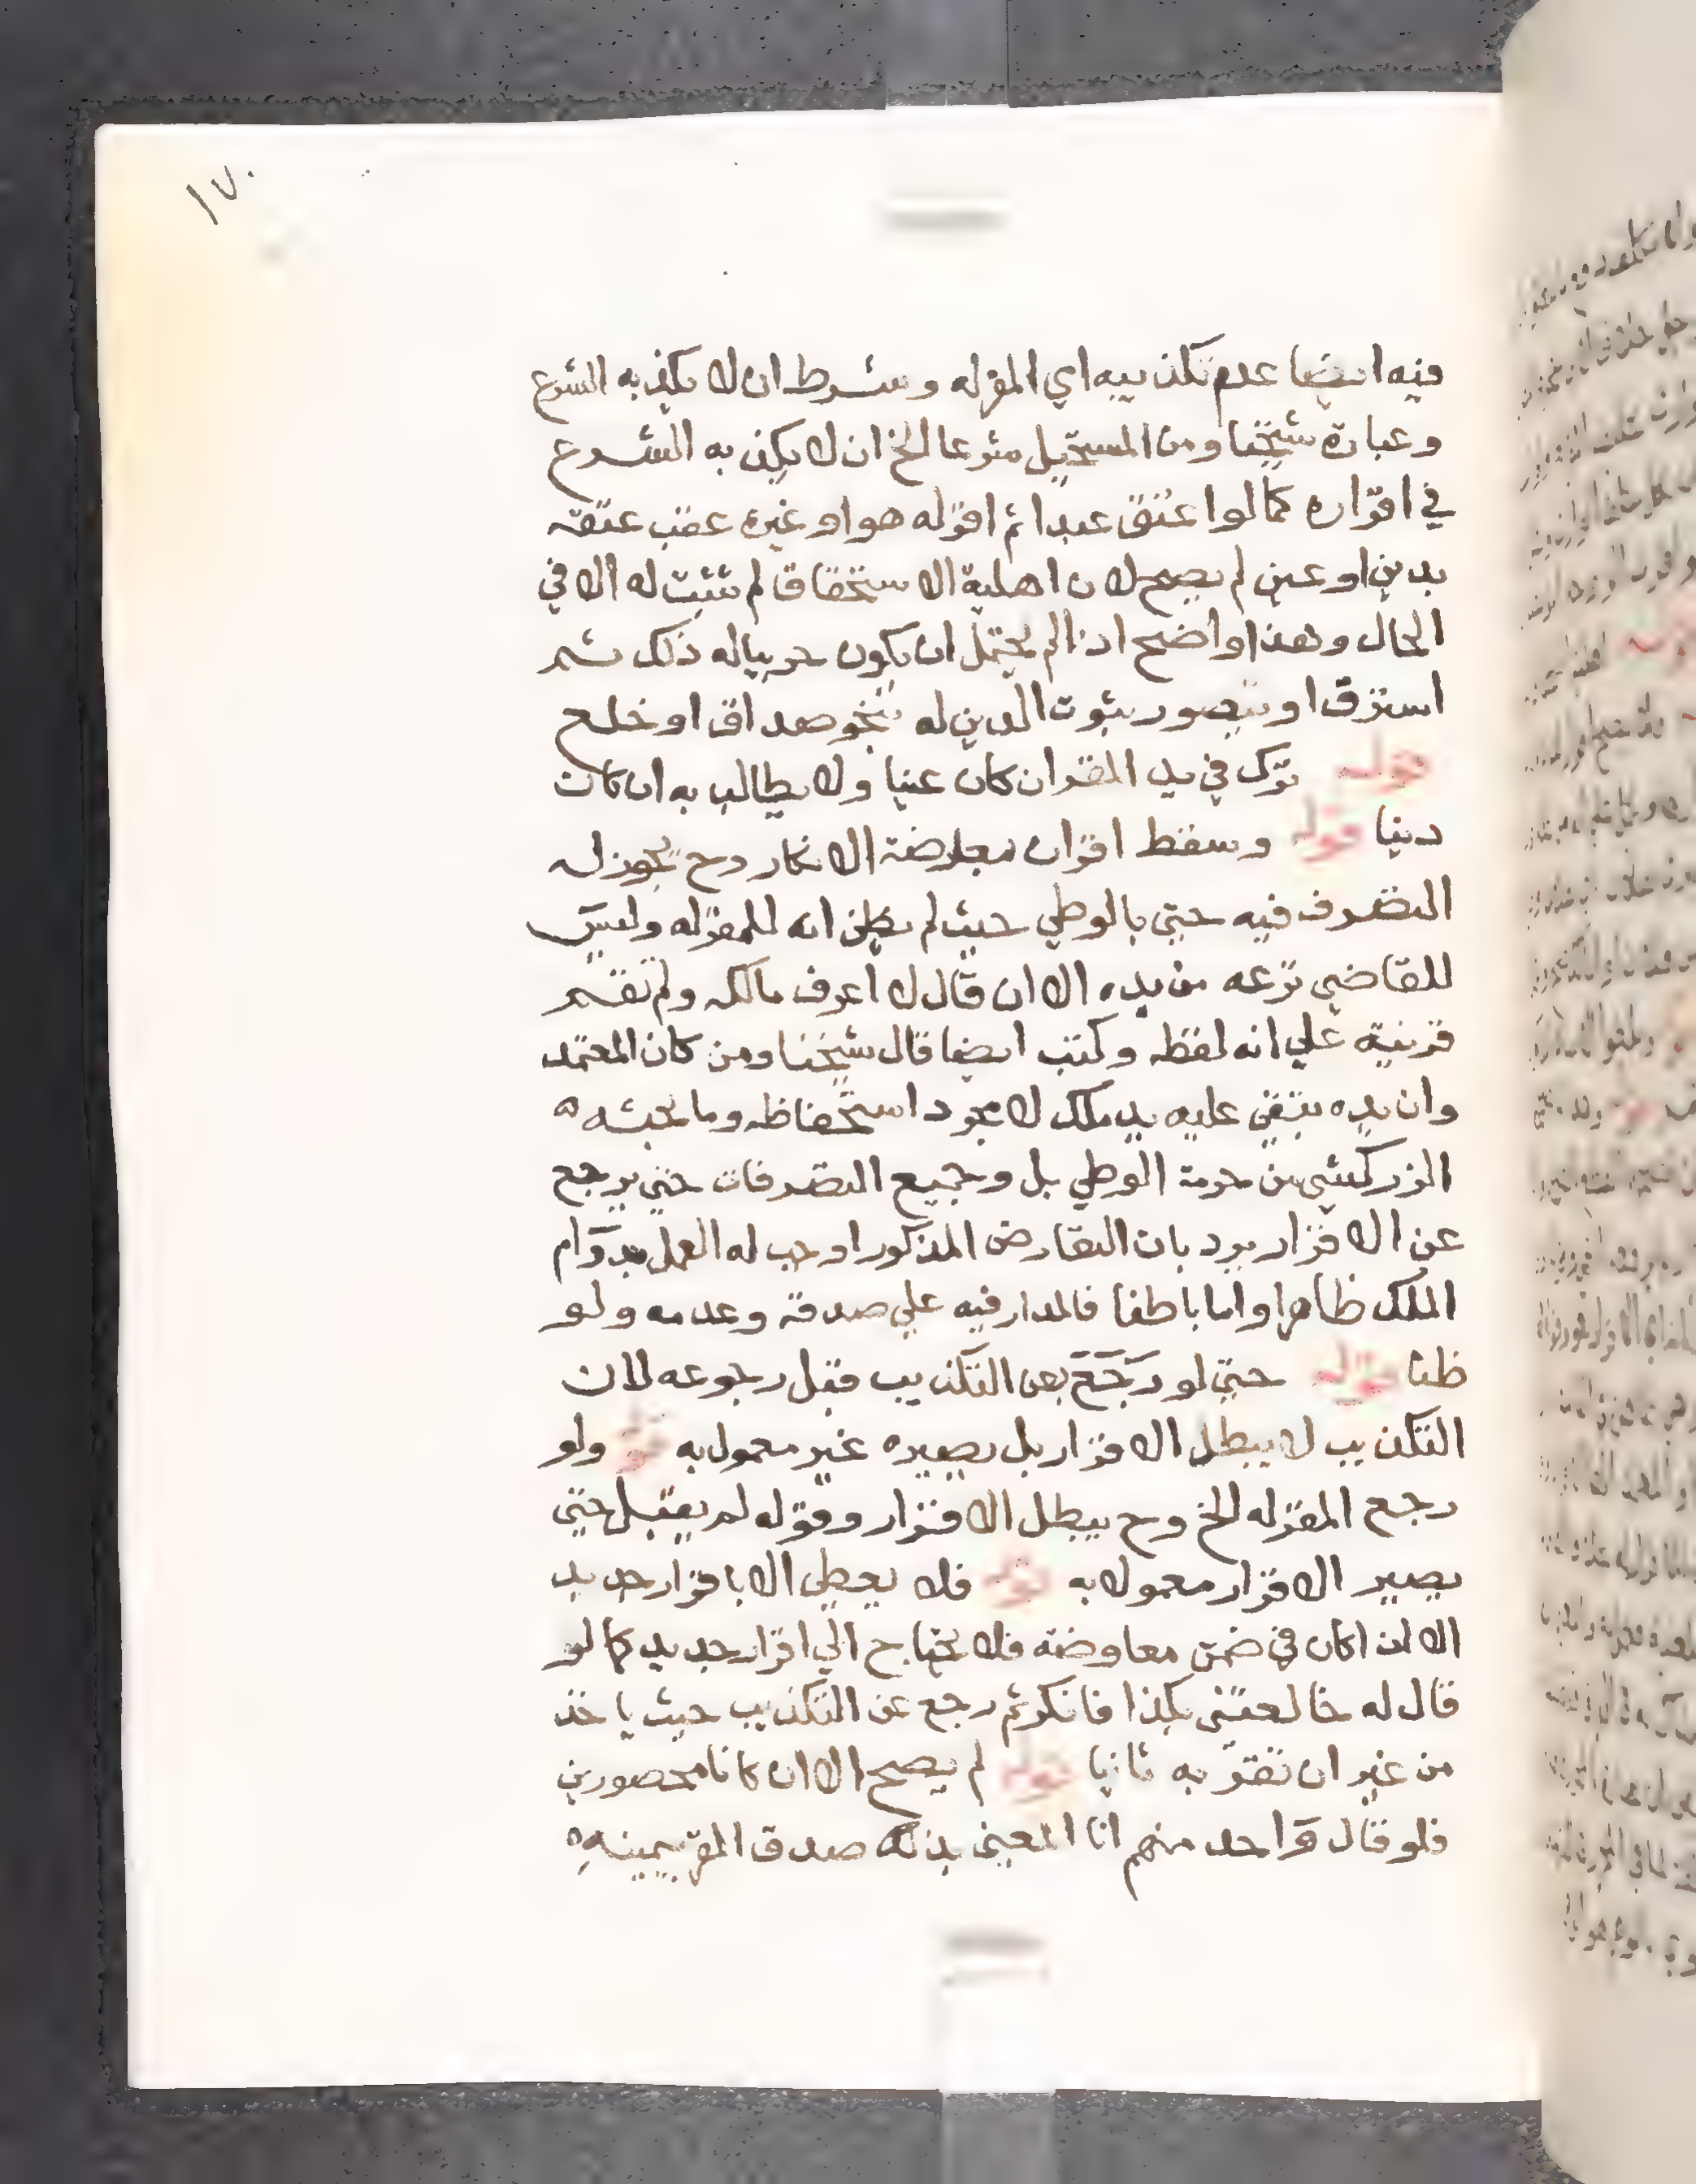 ١٧٠
فيه ايضا عدم تكذيبه اي المقر له وشرط ان لا يكذبه الشرع
وعبارة شيخنا ومن المستحيل شرعا الخ ان لا يكذبه الشرع
في اقراره كما لو اعتق عبدا ثم اقر له هو او غيره عقب عتقه
بدين او عين لم يصح لان اهلية الاستحقاق لم تثبت له الا في
الحال وهذا واضح اذا لم يحتمل ان يكون حربيا له ذلك ثم
استرق او يتصور ثبوت الدين له بنحو صداق او خلع
قوله ترك في يد المقر ان كان عينا ولا يطالب به ان كان
دينا قوله وسقط اقران معارضة الانكار وح يجوز له
التصرف فيه حتى بالوطي حيث لم يظن انه للمقر له وليس
للقاضي نزعه من يده الا ان قال لا اعرف مالكه ولم تقم
قرينة علي انه لقطه وكتب ايضا قال شيخنا ومن كان المعتمد
وان يده تبقي عليه يد ملك لا مجرد استحفاظه وما بحثه ه
الزركشي من حرمة الوطي بل وجميع التصرفات حتى يرجع
عن الاقرار يرد بان التعارض المذكور اوجب له العمل بدوام
الملك ظاهرا واما باطنا فالمدار فيه علي صدقة وعدمه ولو
ظنا قوله حتى لو رجع بعن التكذيب قبل رجوعه لان
التكذيب لا يبطل الاقرار بل يصيره غير معمول به قوله ولو
رجع المقر له الخ وح يبطل الاقرار وقوله لم يقبل حتى
يصير الاقرار معمولا به قوله فلا يعطي الا باقرار جديد
الا ان اكان في ضمن معاوضة فلا يحتاج الي اقرار جديد كما لو
قال له خالعتنى بكذا فانكر ثم رجع عن التكذيب حيث ياخذ
من غير ان تقر به ثانيا قوله لم يصح الا ان كانا محصورين
فلو قال واحد منهم انا المعني بذلك صدق المقر بيمينه ه